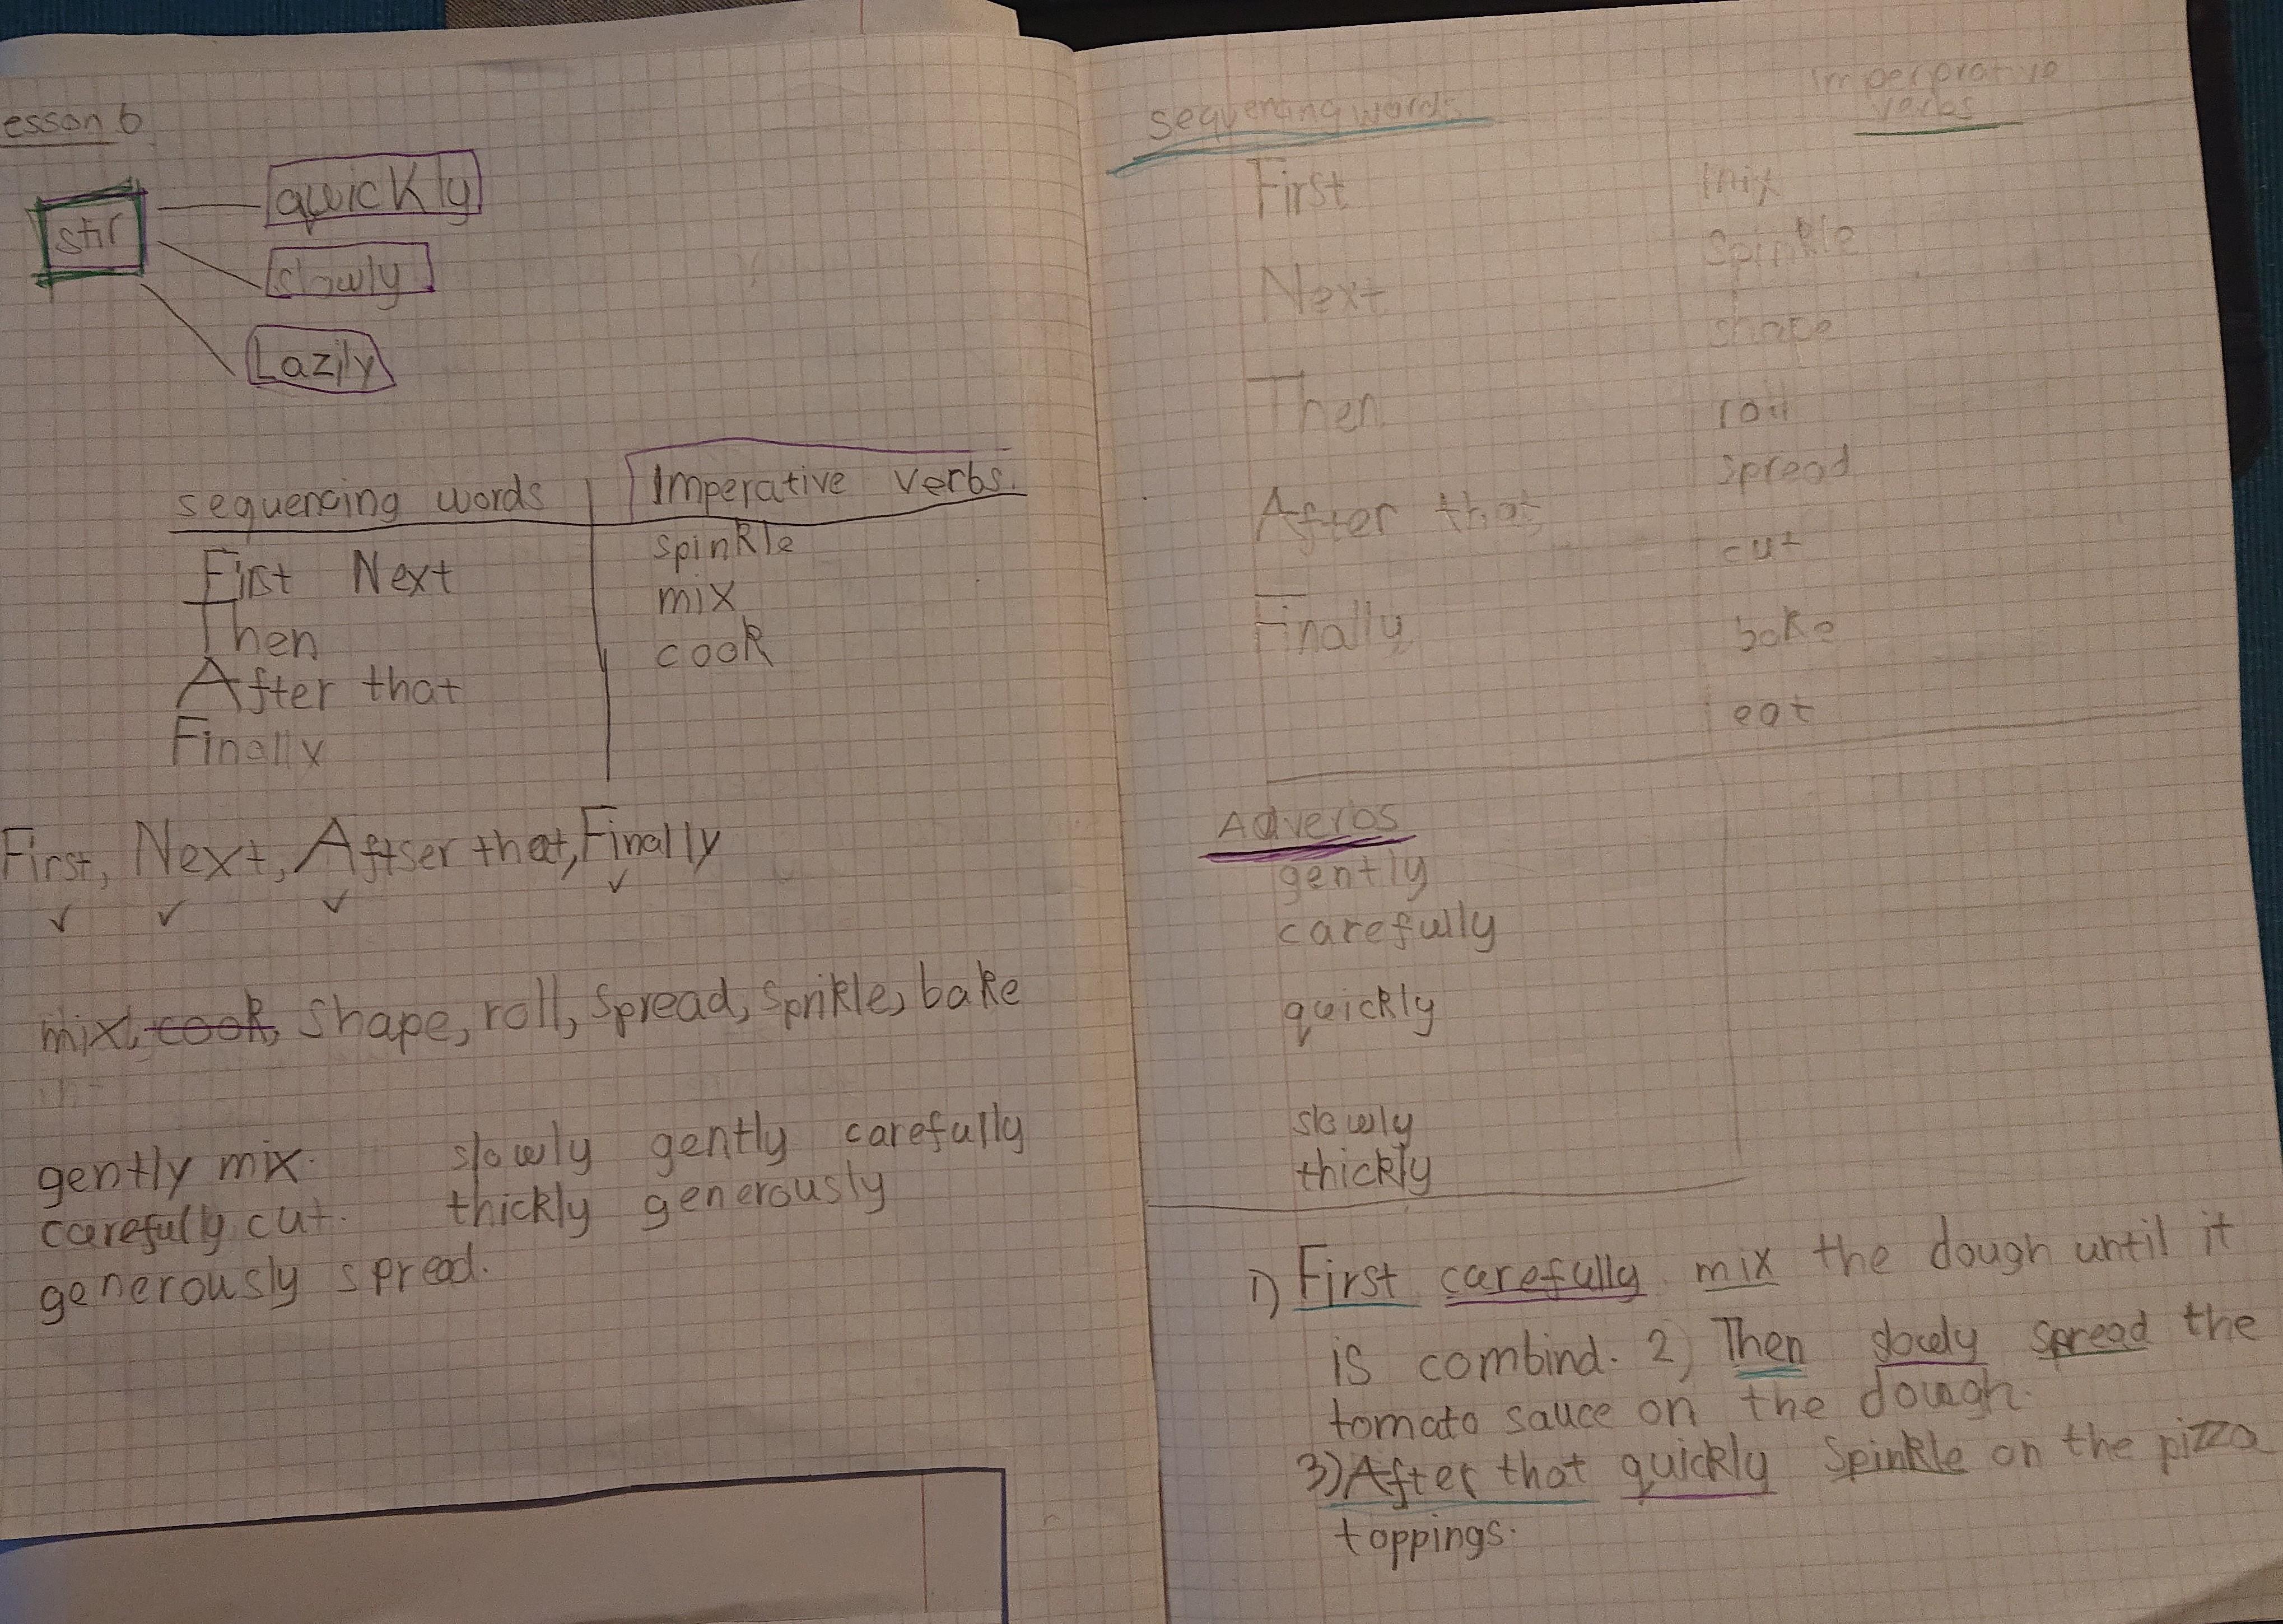 esson 6
stir
quickly
slowly
Lazily
sequencing words
Imperative verbs.
First Next
spinkle
Then
mix
After that
cook
Finally
First, Next, Aftser that, Finally
mix, cook, shape, roll, spread, sprikle, bake
gently mix. slowly gently carefully
carefully cut. thickly generously
generously spread.
sequencing words
imperprative
verbs
First
mix
Spinkle
Next
shape
Then
roll
spread
After that
cut
Finally
bake
eat
Adverbs
gently
carefully
quickly
slowly
thickly
1) First carefully mix the dough until it
is combind. 2) Then slowly spread the
tomato sauce on the dough.
3) After that quickly spinkle on the pizza
toppings.